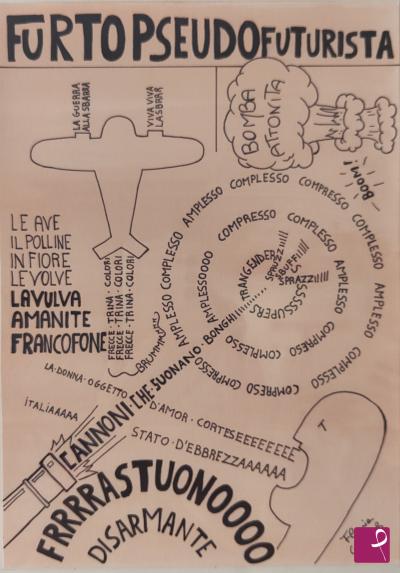 FURTO PSEUDOFUTURISTA
LA GUERRA
ALLA SBARRA
VIVA VIVA
LA SBARRA
BOMBA
ATTONITA
BOOM!
LE AVE
IL POLLINE
IN FIORE
LE VOLVE
LA VULVA
AMANITE
FRANCOFONE
FRECCE - TRINA - COLORI
FRECCE - TRINA - COLORI
FRECCE - TRINA - COLORI
AMPLESSO COMPLESSO AMPLESSO COMPLESSO COMPRESSO COMPLESSO AMPLESSO COMPLESSO COMPRESO
COMPRESO COMPLESSO AMPLESSOOOO COMPRESSO COMPLESSO AMPLESSO COMPRESO COMPLESSO
TRANGENDER
CANNONI CHE SUONANO BONGHI
LA - DONNA - OGGETTO
D'AMOR - CORTESEEEEEEEE
ITALIAAAAA
STATO - D'EBBREZZAAAAAA
T
FRRRRASTUONOOOO
DISARMANTE